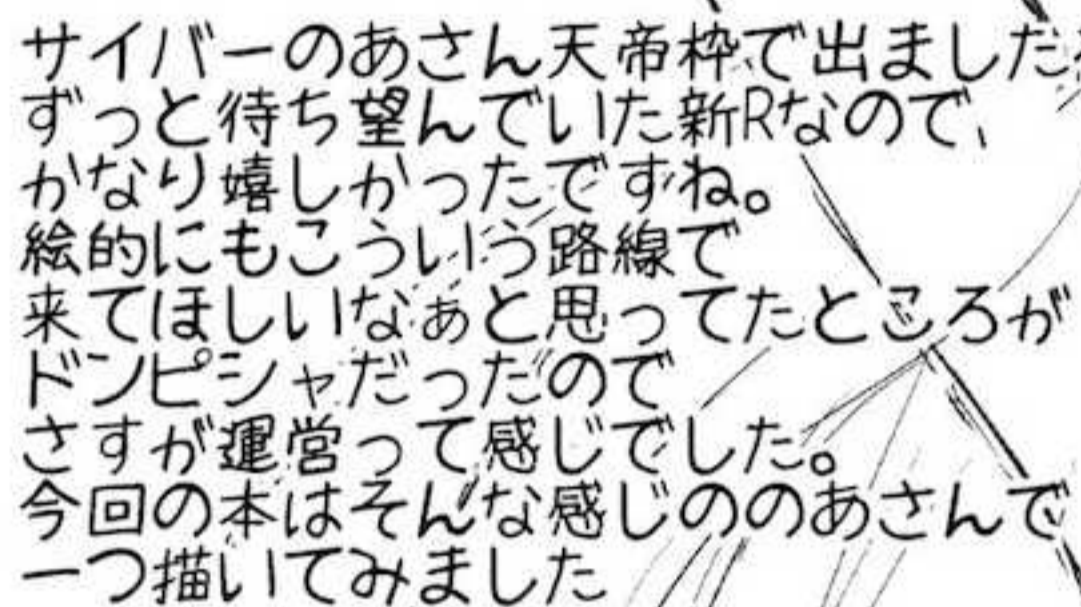 サイバーのあさん天帝枠で出ました
ずっと待ち望んでいた新Rなので、
かなり嬉しかったですね。
絵的にもこういう路線で
来てほしいなぁと思ってたところが
ドンピシャだったので
さすが運営って感じでした。
今回の本はそんな感じののあさんで
一つ描いてみました